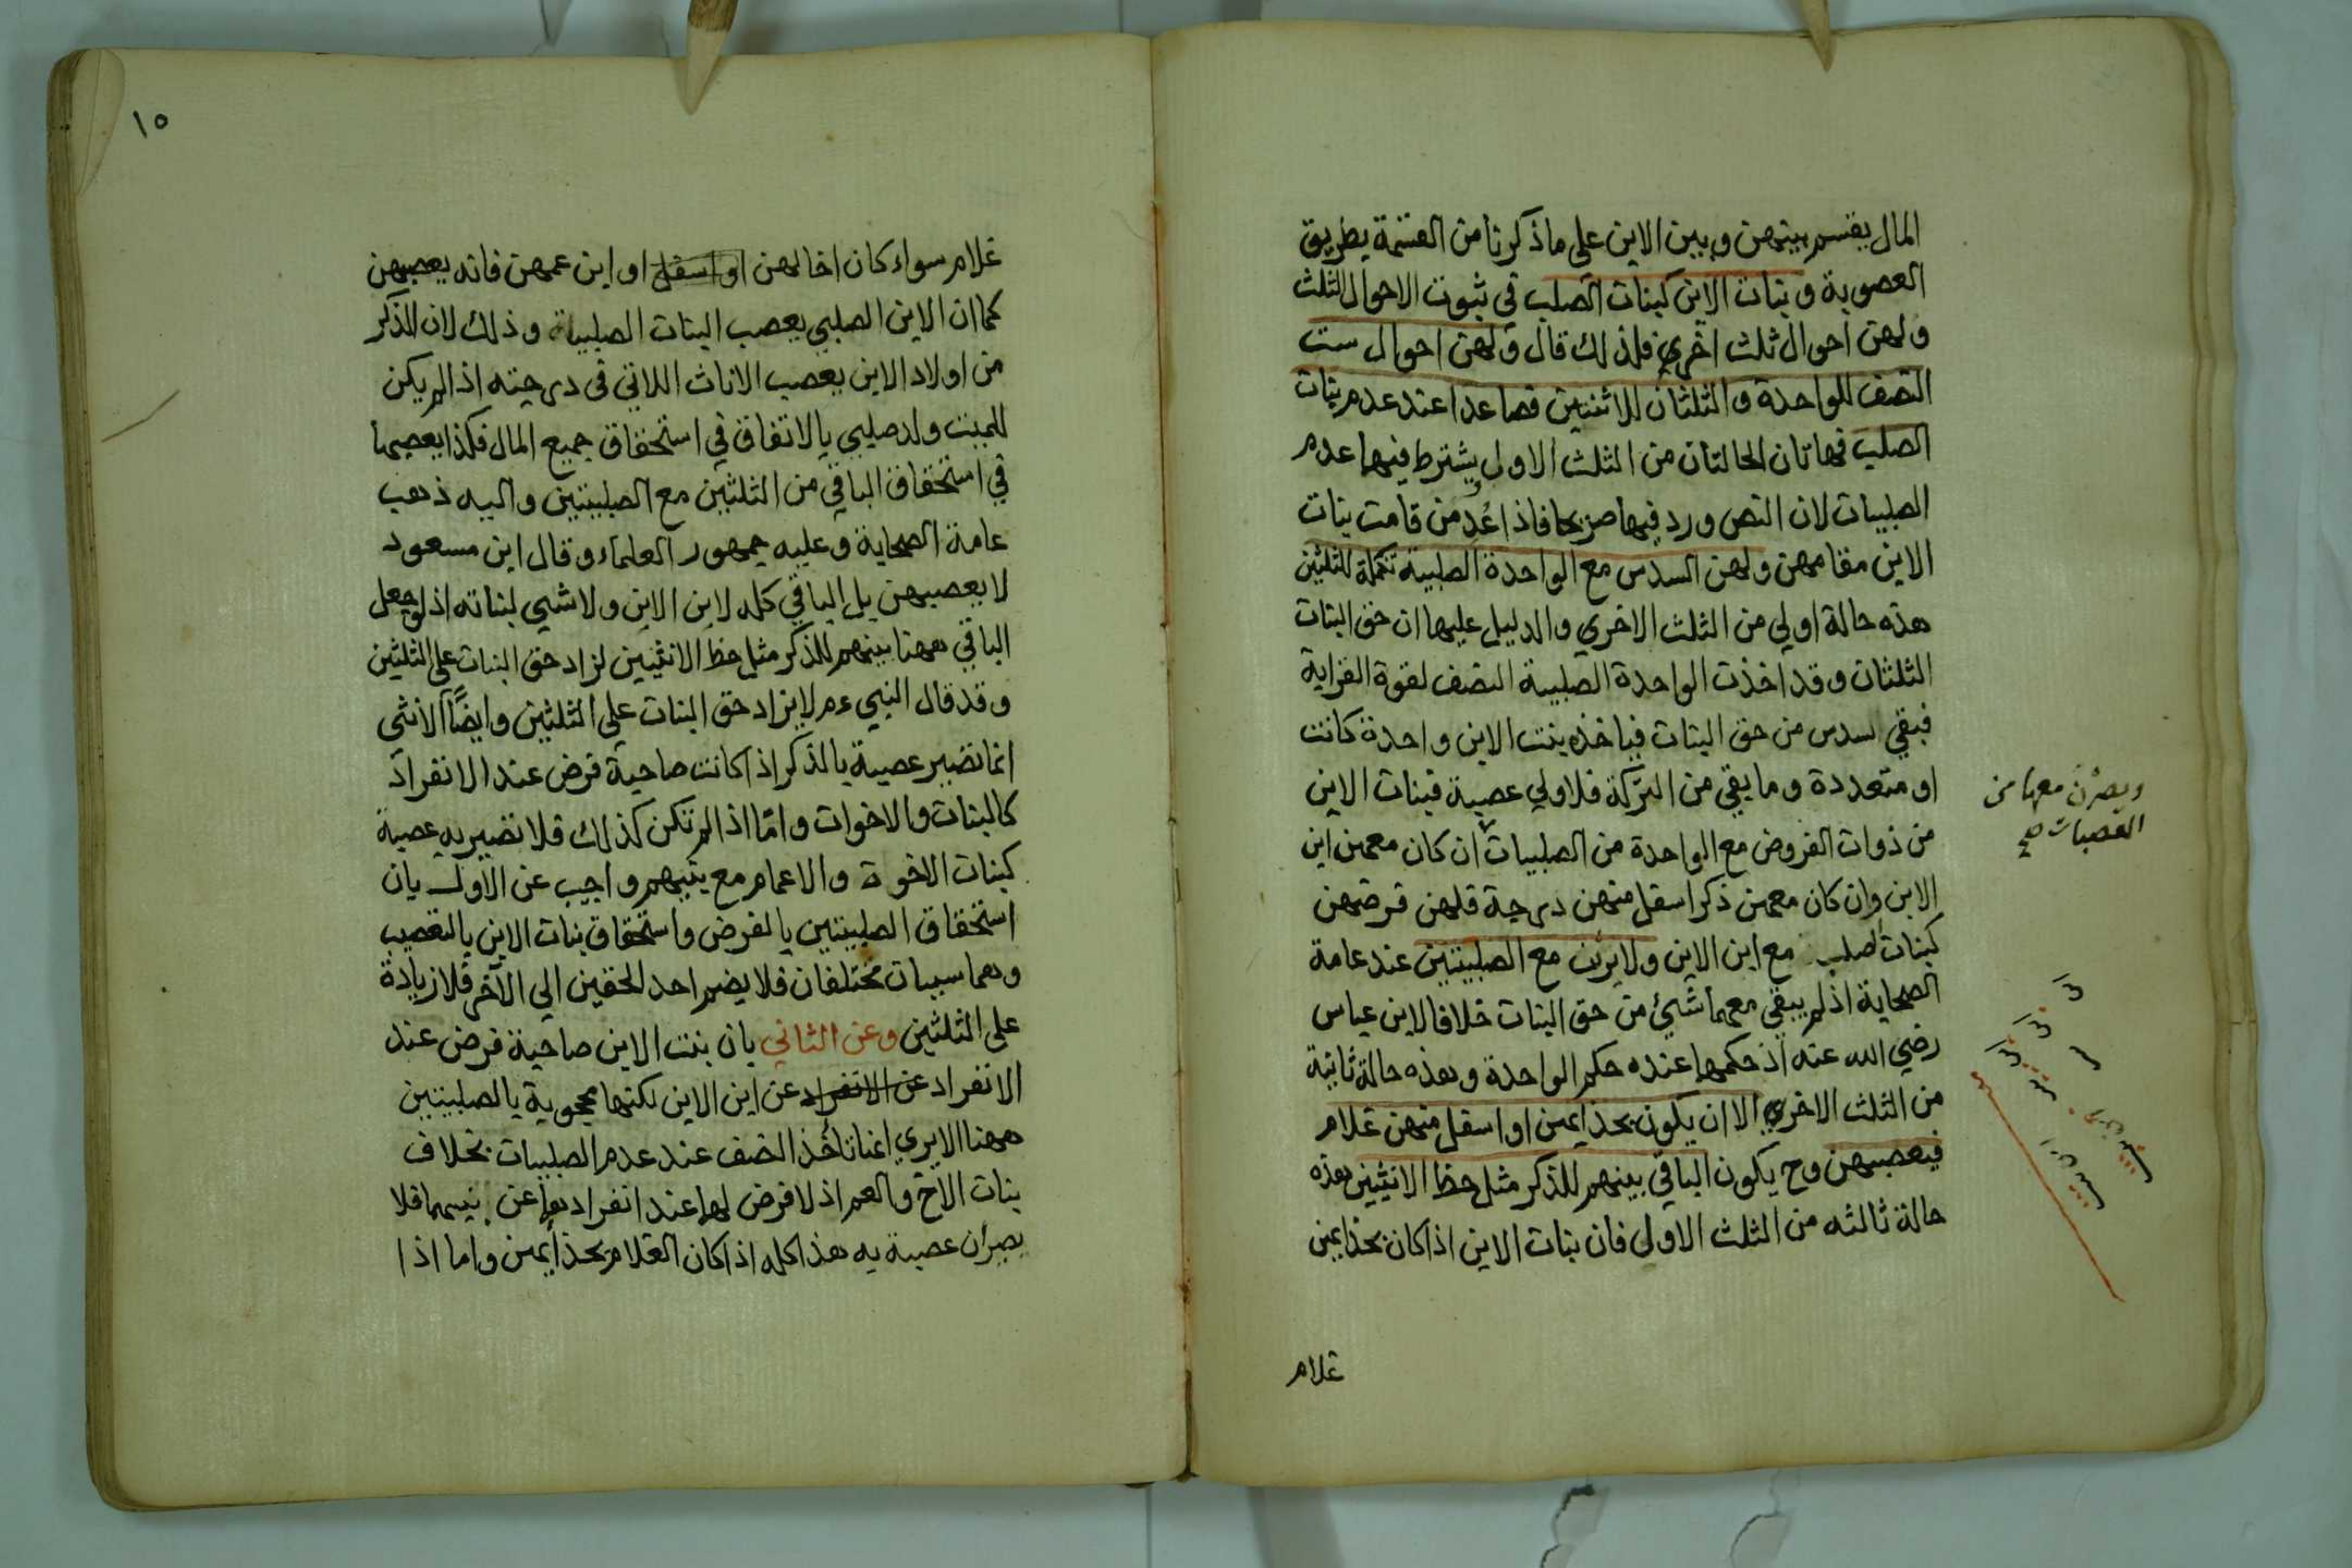 المال يقسم بينهن وبين الابن على ما ذكرنا من القسمة بطريق
العصوبة وبنات الابن كبنات الصلب في ثبوت الاحوال الثلث
ولهن احوال ثلث اخرى فلذلك قال ولهن احوال ست
النصف للواحدة والثلثان للاثنتين فصاعدا عند عدم بنات
الصلب فهاتان الحالتان من الثلث الاول يشترط فيها عدم
الصلبيات لان النص ورد فيها صريحا فاذا عُدِمن قامت بنات
الابن مقامهن ولهن السدس مع الواحدة الصلبية تكملة للثلثين
هذه حالة اولي من الثلث الاخري والدليل عليها ان حق البنات
الثلثان وقد اخذت الواحدة الصلبية النصف لقوة القرابة
فبقي سدس من حق البنات فيأخذه بنت الابن واحدة كانت
او متعددة وما بقي من التركة فلاولي عصبة فبنات الابن
من ذوات الفروض مع الواحدة من الصلبيات ان كان معهن ابن
الابن وان كان معهن ذكرا سفل منهن درجة فلهن فرضهن
كبنات الصلب مع ابن الابن ولا يرثن مع الصلبيتين عند عامة
الصحابة اذ لم يبقي معهما شيئ من حق البنات خلافا لابن عباس
رضي الله عنه اذ حكمها عنده حكم الواحدة وهذه حالة ثانية
من الثلث الاخري الا ان يكون بحذايهن او اسفل منهن غلام
فيعصبهن وح يكون الباقي بينهم للذكر مثل حظ الانثيين هذه
حالة ثالثه من الثلث الاولي فان بنات الابن اذا كان بحذايهن
غلام
ويصرن معها من
العصبات صح
١٥
غلام سواء كان اخا لهن او اسفل او ابن عمهن فانه يعصبهن
كما ان الابن الصلبي يعصب البنات الصلبيات وذلك لان الذكر
من اولاد الابن يعصب الاناث اللاتي في درجته اذا لم يكن
للميت ولد صلبي بالاتفاق في استحقاق جميع المال فكذا يعصبها
في استحقاق الباقي من الثلثين مع الصلبيتين واليه ذهب
عامة الصحابة وعليه جمهور العلماء وقال ابن مسعود
لا يعصبهن بل الباقي كله لابن الابن ولا شيي لبناته اذ لو جعل
الباقي ههنا بينهم للذكر مثل حظ الانثيين لزاد حق البنات على الثلثين
وقد قال النبي ءم لا يزاد حق البنات علي الثلثين وايضًا الأنثى
انما تصير عصبة بالذكر اذا كانت صاحبة فرض عند الانفراد
كالبنات والاخوات وامّا اذا لم تكن كذلك فلا تصير به عصبة
كبنات الاخوة والاعمام مع بنيهم واجيب عن الاول بان
استحقاق الصلبيتين بالفرض واستحقاق بنات الابن بالتعصيب
وهما سببان مختلفان فلا يضم احد الحقين الي الآخر فلا زيادة
على الثلثين وعن الثاني بان بنت الابن صاحبة فرض عند
الانفراد عن الانفراد عن ابن الابن لكنها محجوبة بالصلبيتين
ههنا الا يري انها تأخذ النصف عند عدم الصلبيات بخلاف
بنات الاخ والعم اذ لا فرض لها عند انفرادها عن بنيهما فلا
يصرن عصبة به هذا كله اذا كان الغلام بحذايهن واما اذا